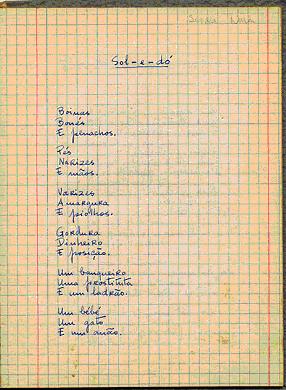 Sol-e-dó
Boinas
Bonés
E penachos.
Pés
Narizes
E mãos.
Varizes
Amargura
E piolhos.
Gordura
Dinheiro
E posição.
Um banqueiro
Uma prostituta
E um ladrão.
Um bébé
Um gato
E um anão.